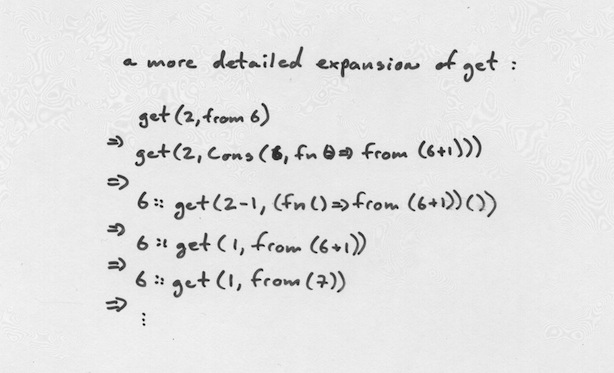 a more detailed expansion of get :
get (2, from 6)
⇒ get (2, Cons (6, fn () ⇒ from (6+1)))
⇒
6 :: get (2-1, (fn () ⇒ from (6+1)) ())
⇒ 6 :: get (1, from (6+1))
⇒ 6 :: get (1, from (7))
⇒ ⋮